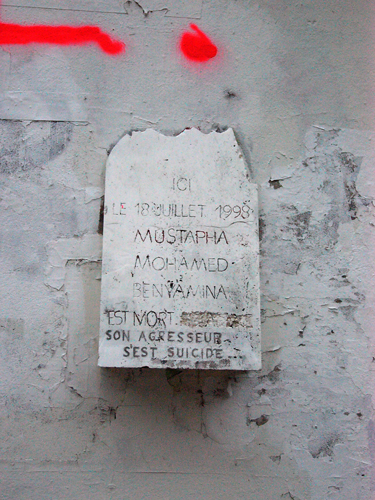 ICI
LE 18 JUILLET 1998
MUSTAPHA
MOHAMED
BENYAMINA
EST MORT.
SON AGRESSEUR
S'EST SUICIDÉ...